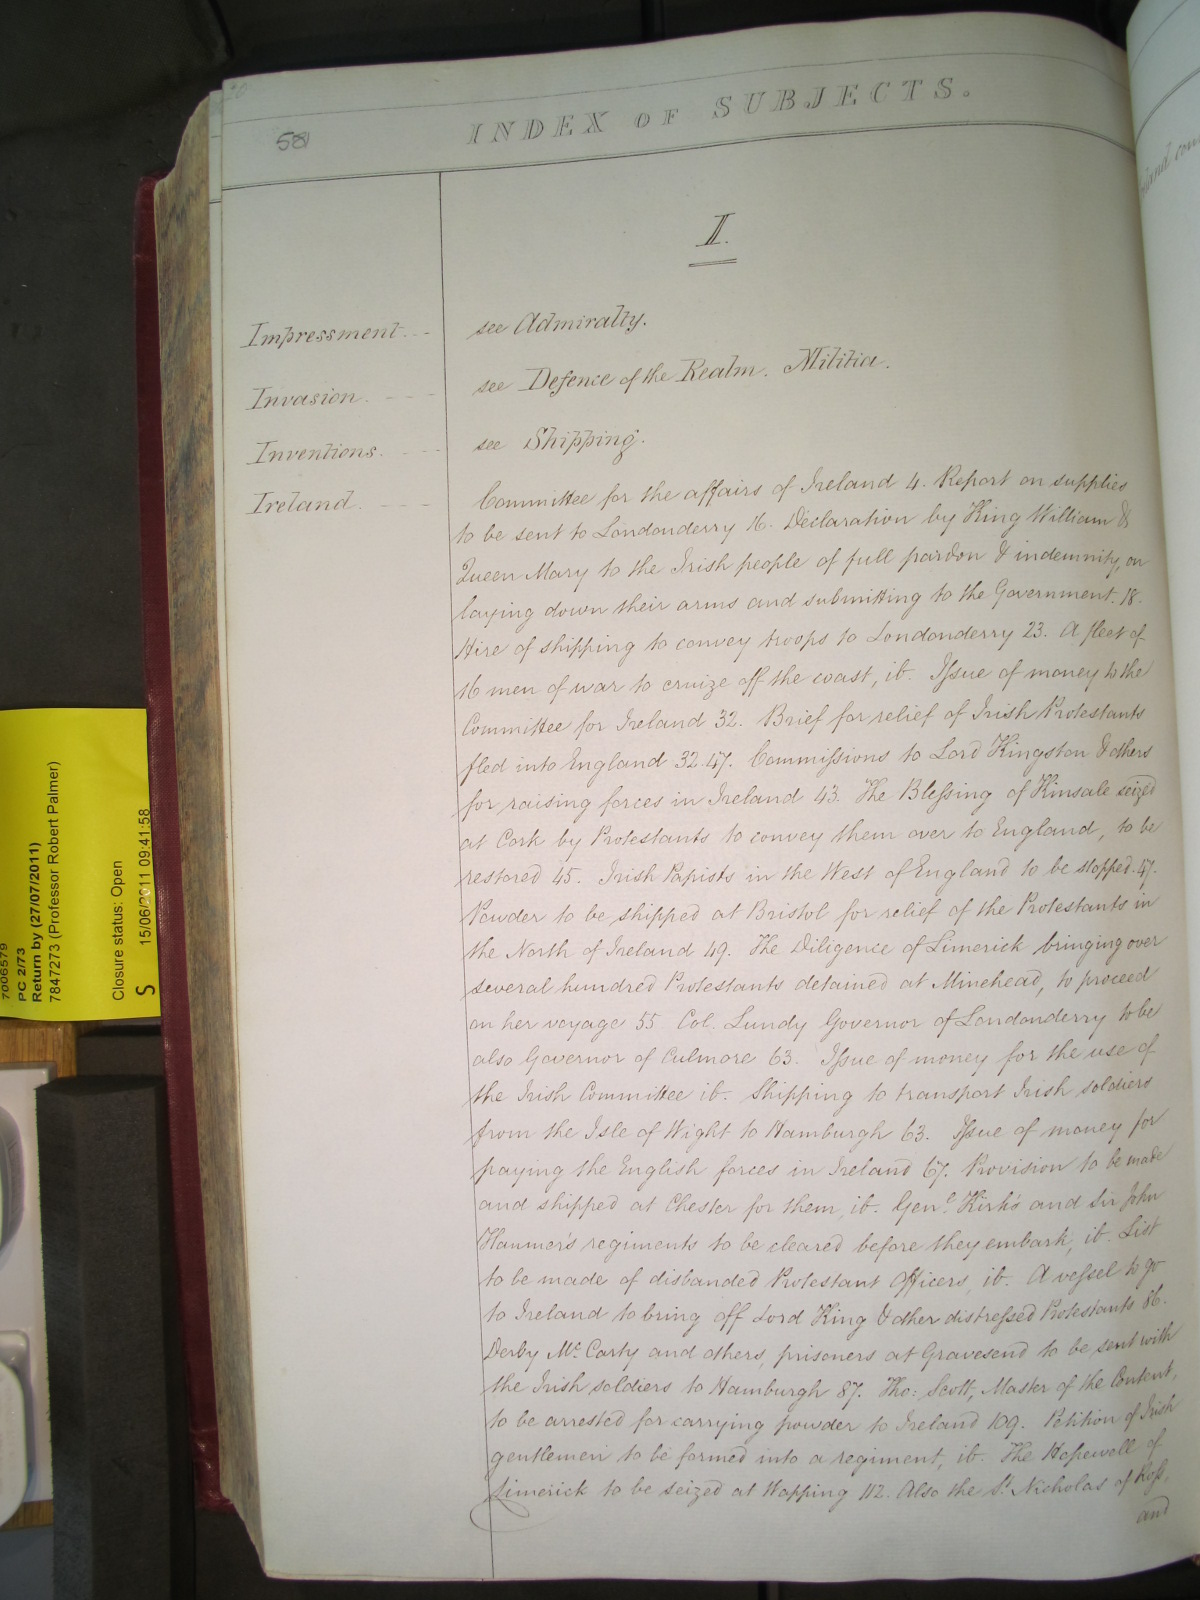 58
INDEX OF SUBJECTS.
I.
Impressment. see Admiralty.
Invasion. see Defence of the Realm. Militia.
Inventions. see Shipping.
Ireland. Committee for the affairs of Ireland 4. Report on supplies
to be sent to Londonderry 16. Declaration by King William &
Queen Mary to the Irish people of full pardon & indemnity, on
laying down their arms and submitting to the Government. 18.
Hire of shipping to convey troops to Londonderry 23. A fleet of
16 men of war to cruize off the coast, ib. Issue of money to the
Committee for Ireland 32. Brief for relief of Irish Protestants
fled into England 32.47. Commissions to Lord Kingston & others
for raising forces in Ireland 43. The Blessing of Kinsale seized
at Cork by Protestants to convey them over to England, to be
restored 45. Irish Papists in the West of England to be stopped. 47.
Powder to be shipped at Bristol for relief of the Protestants in
the North of Ireland 49. The Diligence of Limerick bringing over
several hundred Protestants detained at Minehead, to proceed
on her voyage 55. Col. Lundy Governor of Londonderry to be
also Governor of Culmore 63. Issue of money for the use of
the Irish Committee ib. Shipping to transport Irish soldiers
from the Isle of Wight to Hamburgh 63. Issue of money for
paying the English forces in Ireland 67. Provision to be made
and shipped at Chester for them, ib. Genl. Kirk's and Sir John
Hanmer's regiments to be cleared before they embark, ib. List
to be made of disbanded Protestant Officers, ib. A vessel to go
to Ireland to bring off Lord King & other distressed Protestants 86.
Derby Mc. Carty and others, prisoners at Gravesend to be sent with
the Irish soldiers to Hamburgh 87. Tho: Scott, Master of the Content,
to be arrested for carrying powder to Ireland 109. Petition of Irish
gentlemen to be formed into a regiment, ib. The Hopewell of
Limerick to be seized at Wapping 112. Also the St. Nicholas of Ross,
and
7006579
PC 2/73
Return by (27/07/2011)
7847273 (Professor Robert Palmer)
Closure status: Open
S 15/06/2011 09:41:58